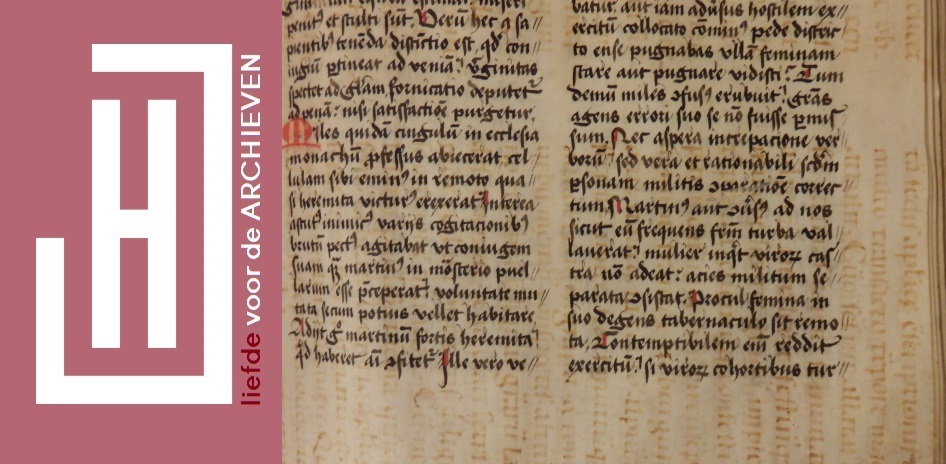 liefde voor de ARCHIEVEN
penit᷒ et stulti sūt. Verū hec a sa//
pientib᷒ tenēda distīctio est, qd̕ con//
iugiū ꝑtineat ad veniā: v̕ginitas
spectet ad gl̄am fornicatio deputet᷑
ad penā: nisi satisfactiōe purgetur.
Miles quidā cingulū in ecclesia
monachū ꝓfessus abiecerat, cel/
lulam sibi emin᷒ in remoto qua//
si heremita victur᷒ erexerat Interea
astut᷒ inimic᷒ varijs cogitacionib᷒
brutū pect᷒ agitabat ut coniugem
suam quā martin᷒ in mōsterio puel//
larum esse p̄ceperat: voluntate mu//
tata secum potius vellet habitare,
Adijt g̊ martinū fortis heremita
qd̕ haberet aīo ꝯfitet᷑. Ille vero ve//
batur. aut iam adūsus hostilem ex//
ercitū collocato comin᷒ pede distric//
to ense pugnabas ullā feminam
stare aut pugnare vidisti: Tum
demū miles ꝯfus᷒ erubuit: gr̄as
agens errori suo se nō fuisse ꝑmis//
sum. Nec aspera increpacione ver//
borū: sed vera et rationabili scd̄m
ꝑsonam militis ꝯparatiōe correc//
tum. Martin᷒ aut̄ ꝯūs᷒ ad nos
sicut eū frequens frm̄ turba val//
lauerat: mulier inq̇t viroꝝ cas//
tra nō adeat: acies militum se//
parata ꝯsistat. Procul femina in
suo degens tabernaculo sit remo//
ta. Contemptibilem eīm reddit
exercitū: si viroꝝ cohortibus tur//